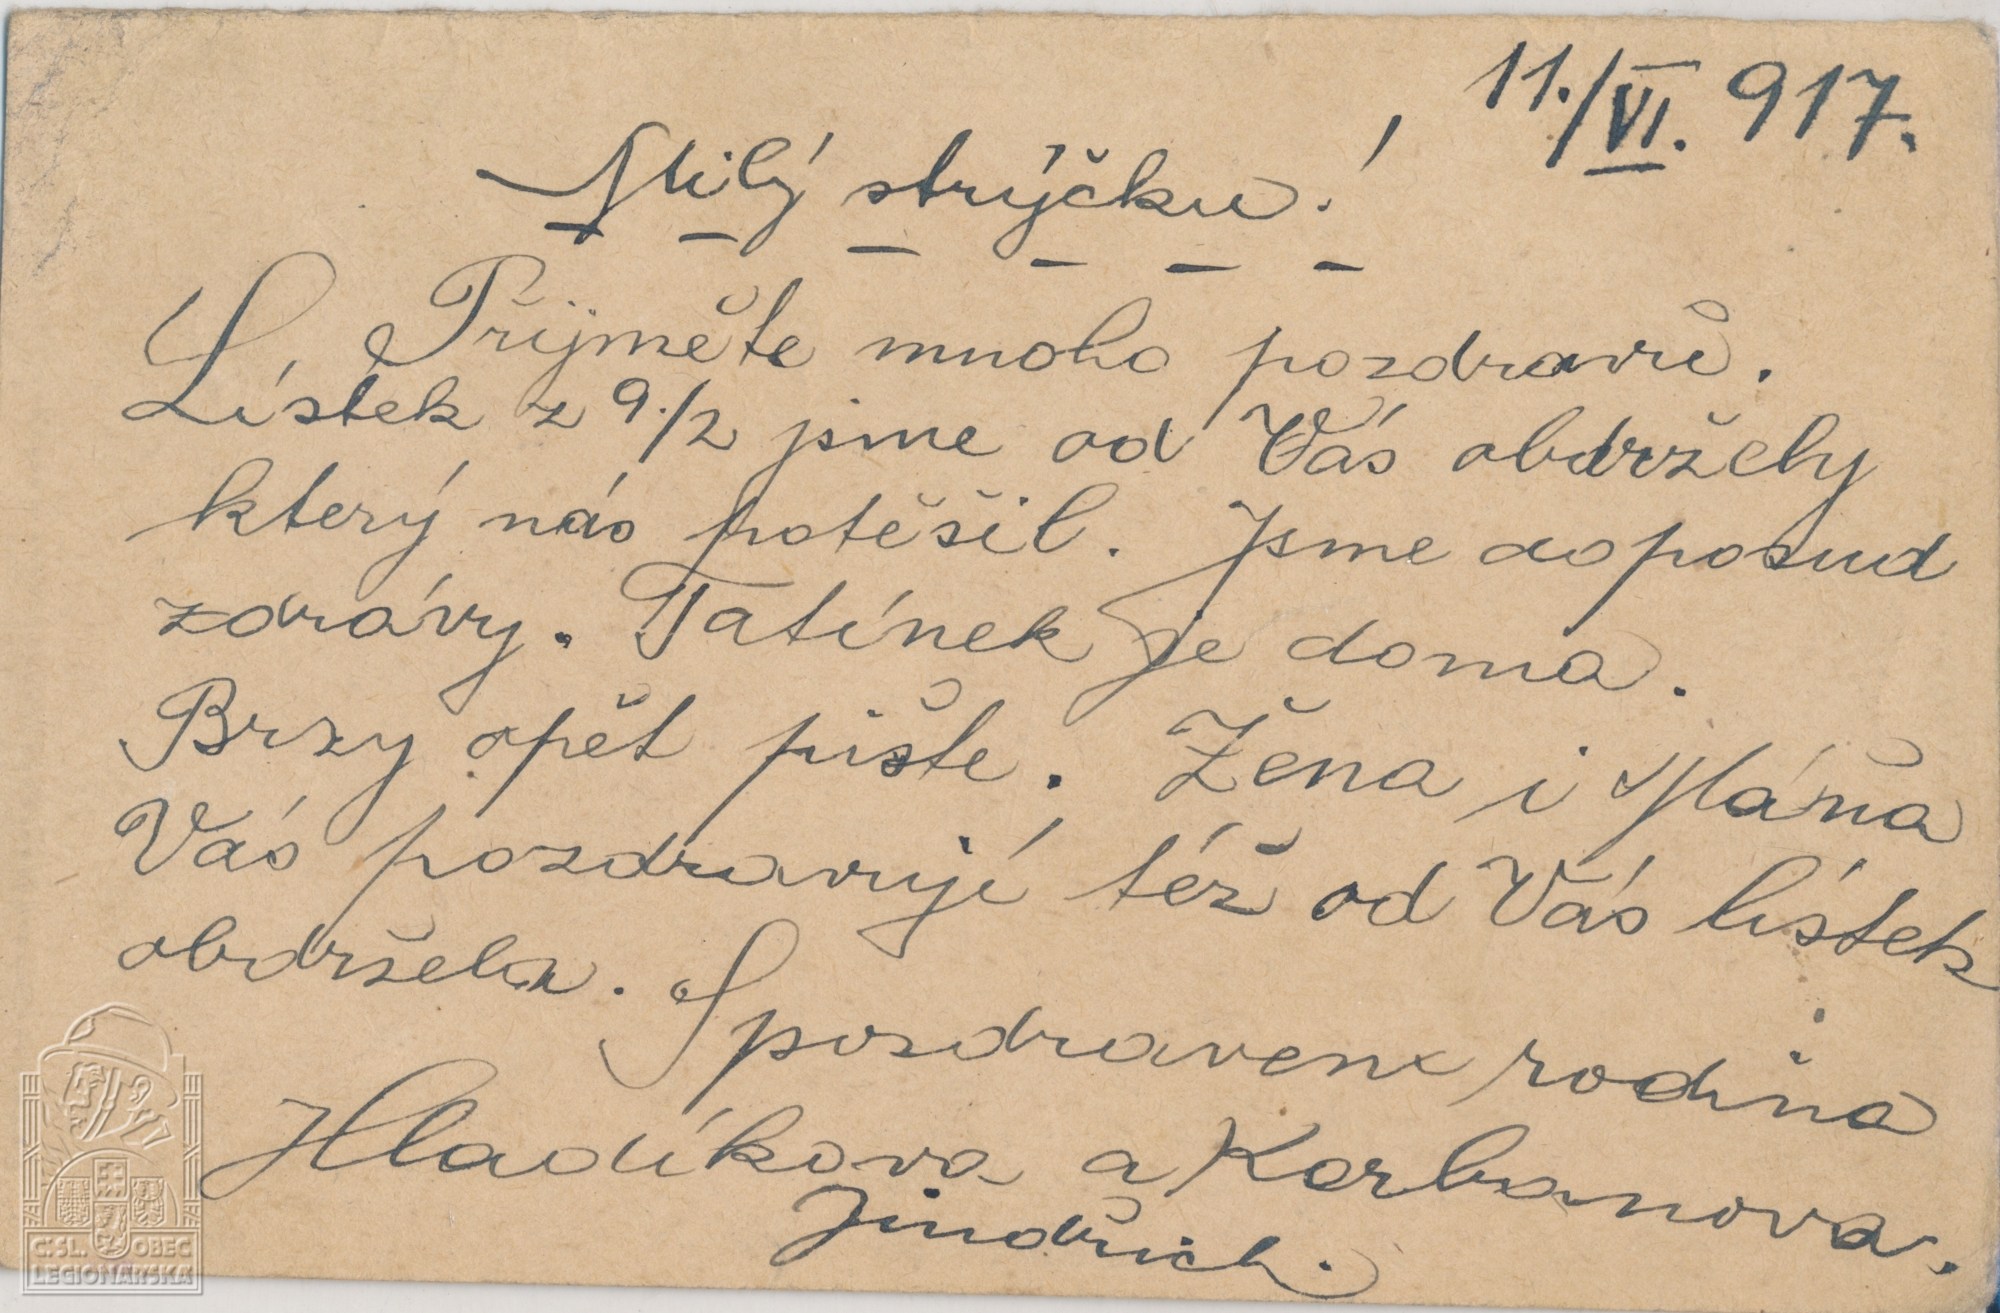 11./VI. 917.
Milý strýčku!
Přijměte mnoho pozdravů.
Lístek z 9./2 jsme od Vás obdržely
který nás potěšil. Jsme doposud
zdrávy. Tatínek je doma.
Brzy opět pište. Žena i Máňa
Vás pozdravují též od Vás lístek
obdržela. S pozdravem rodina
Hladíkova a Korbanova.
Jindřich.
Č.SL. OBEC
LEGIONÁŘSKÁ